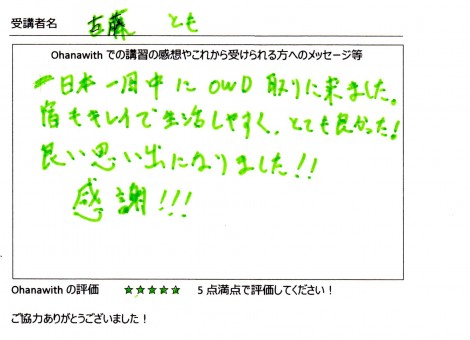 受講者名 古藤 とも
Ohanawith での講習の感想やこれから受けられる方へのメッセージ等
日本一周中に OWD 取りに来ました。
宿もキレイで生活しやすく、とても良かった!
良い思い出になりました!!
感謝!!!
Ohanawith の評価 ★★★★★ 5 点満点で評価してください！
ご協力ありがとうございました！